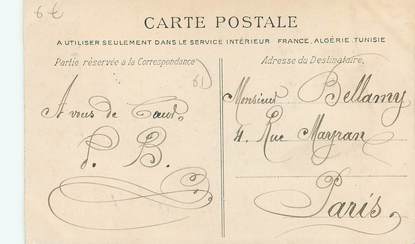 6 €
CARTE POSTALE
A UTILISER SEULEMENT DANS LE SERVICE INTÉRIEUR FRANCE, ALGÉRIE, TUNISIE
Partie réservée à la Correspondance
A vous de Cœur.
P. B.
Adresse du Destinataire.
Monsieur Bellamy
4. Rue Mayran
Paris.